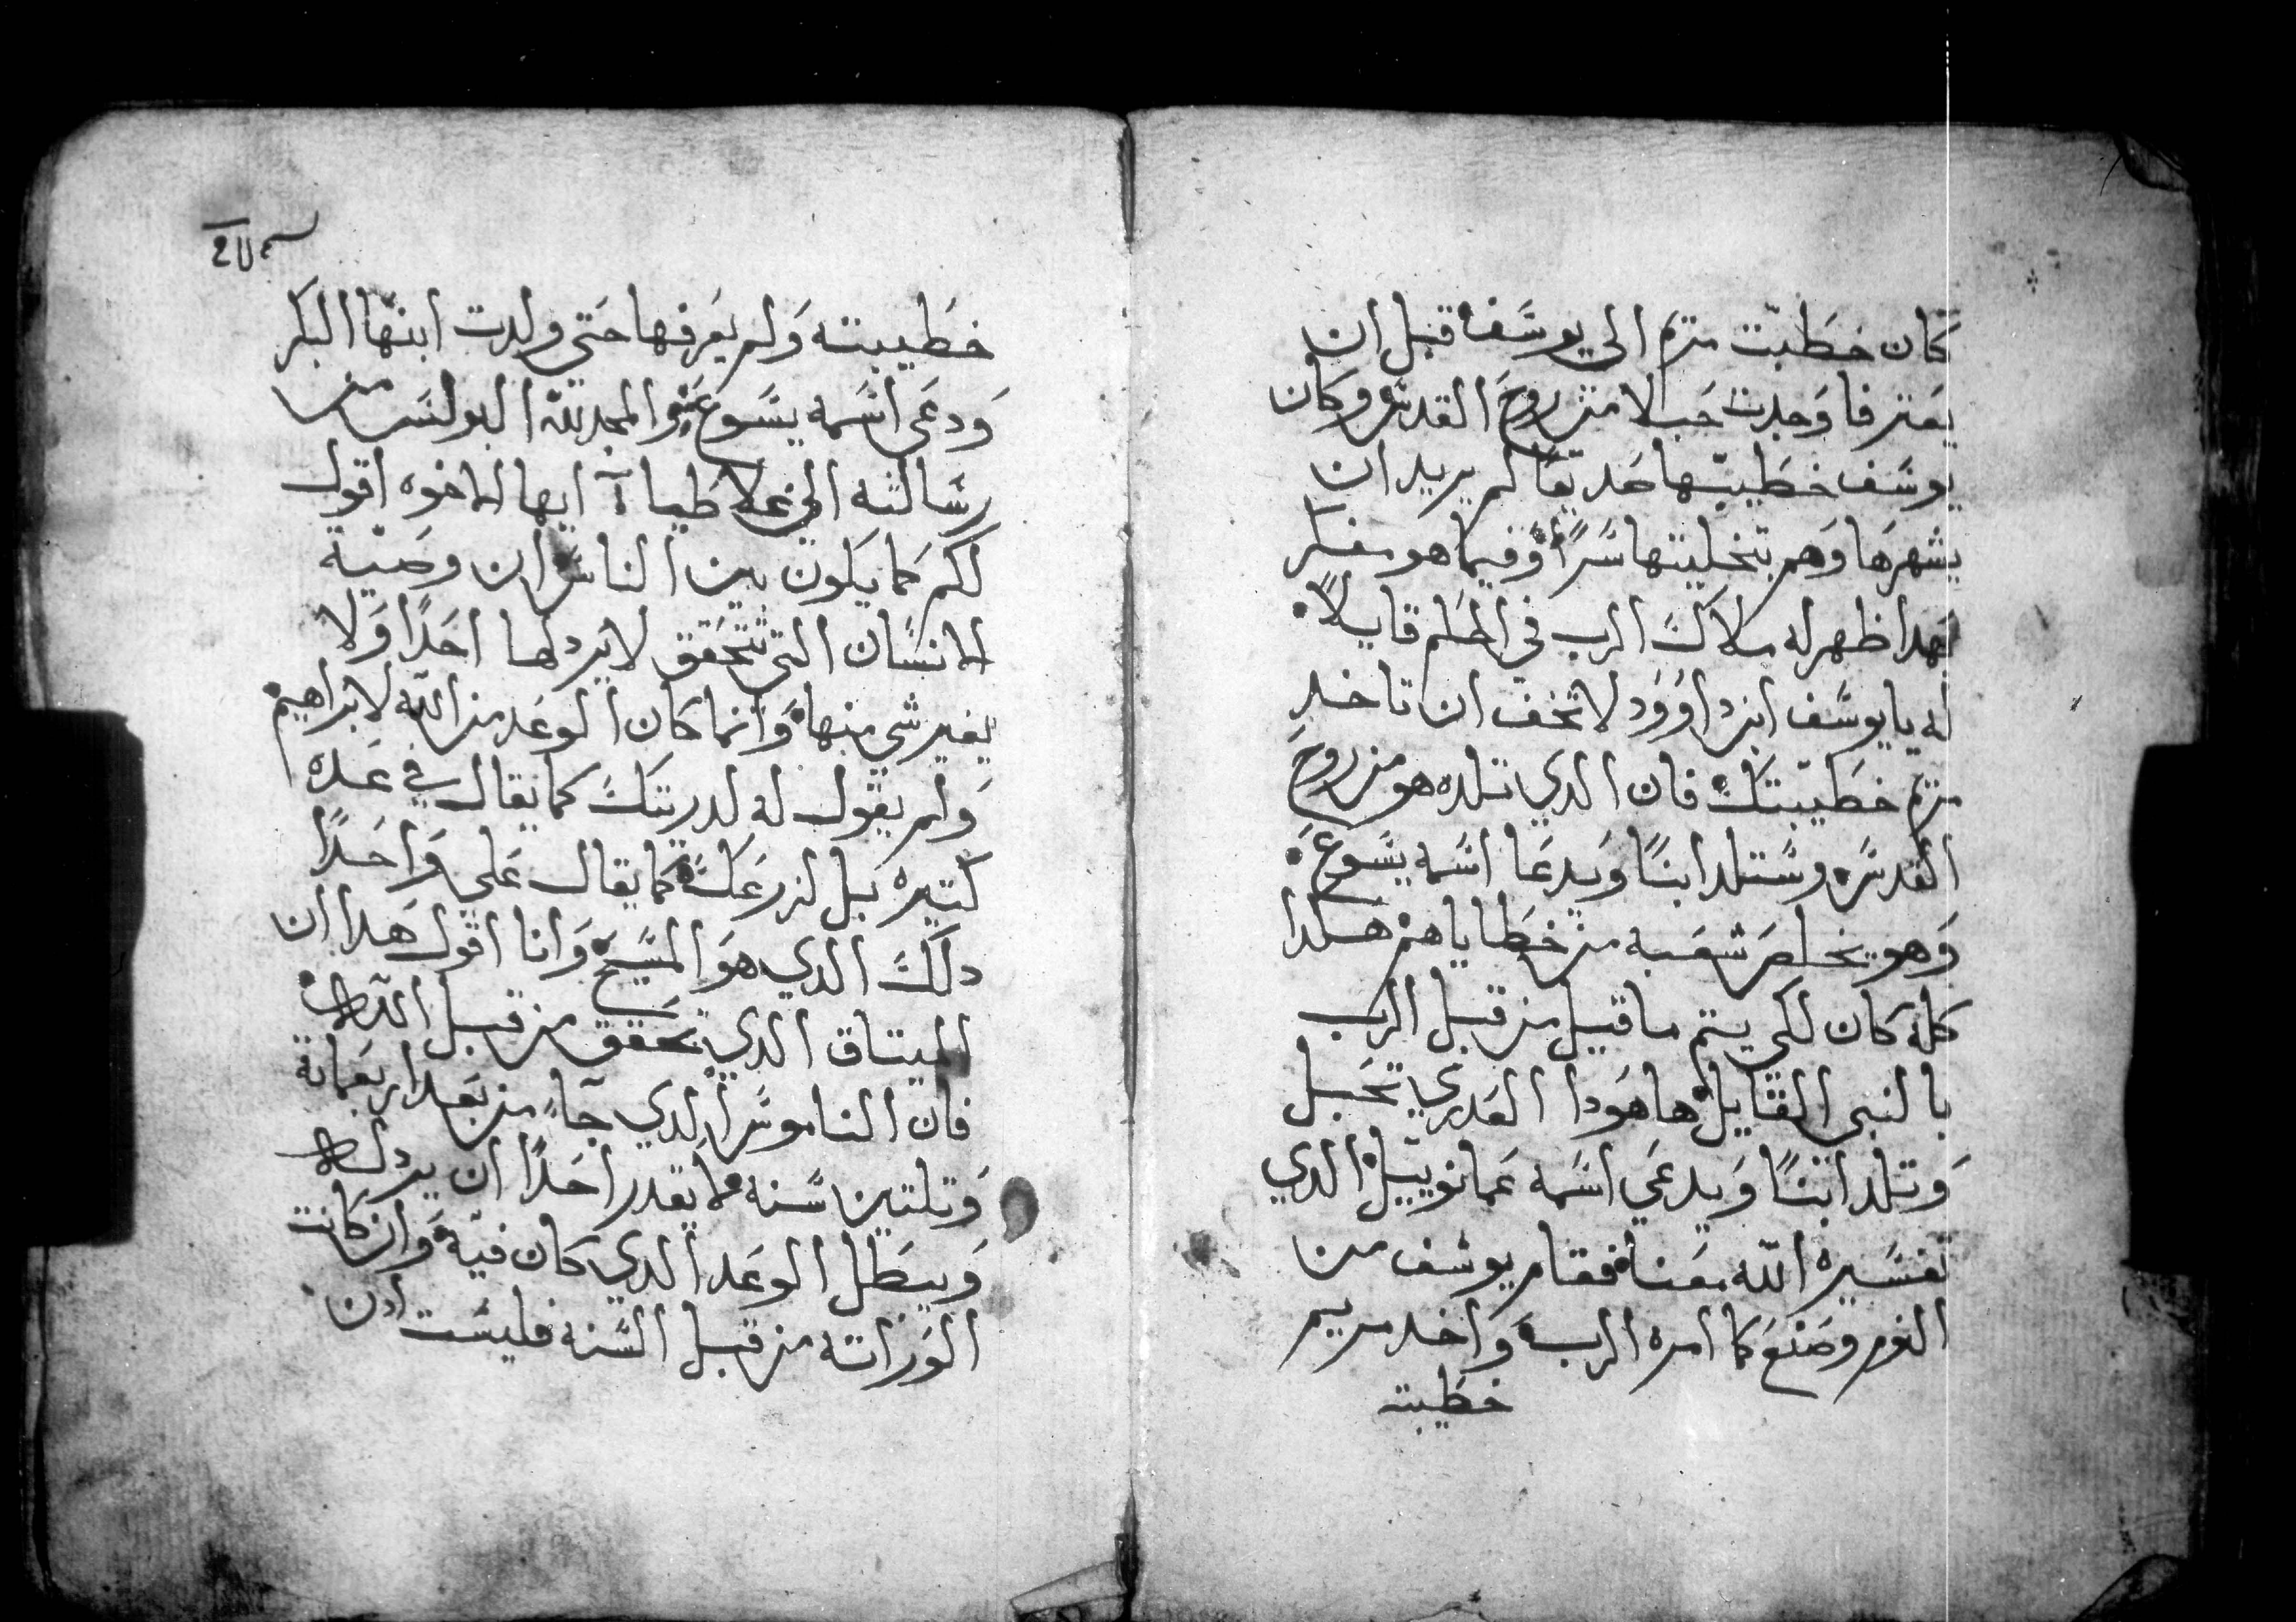 كان خطبت مريم الي يوسف قبل ان
يعترفا وجدت حبلا من روح القدس وكان
يوسف خطيبها صديقا لم يريد ان
يشهرها وهم بتخليتها سرا وفيما هو مفكر
بهدا ظهر له ملاك الرب في الحلم قايلا
له يا يوسف ابن داوود لا تخف ان تاخد
مريم خطيبتك فان الدي تلده هو من روح
القدس وستلد ابنا ويدعا اسمه يسوع
وهو يخلص شعبه من خطاياهم هدا
كله كان لكي يتم ما قيل من قبل الرب
بالنبي القايل ها هودا العدري تحبل
وتلد ابنا ويدعي اسمه عمانوييل الدي
تفسيره الله معنا فقام يوسف من
النوم وصنع كما امره الرب واخد مريم
خطيبته
خطيبته ولم يعرفها حتي ولدت ابنها البكر
ودعي اسمه يسوع والمجد لله البولس من
رسالته الي غلاطيا ايها الاخوه اقول
لكم كما يكون بين الناس ان وصية
الانسان التي تتحقق لا يردلها احدا ولا
يغير شي منها وانما كان الوعد من الله لابراهيم
ولم يقول له لدريتك كما يقال في عده
كتيره بل لزرعك كما يقال علي واحدا
دلك الدي هو المسيح وانا اقول هدا ان
الميتاق الدي تحقق من قبل الله
فان الناموس الدي جا من بعد اربعماية
وتلتين سنه ما يقدر احدا ان يردله
ويبطل الوعد الدي كان فيه وان كانت
الوراته من قبل السنه فليست ادن